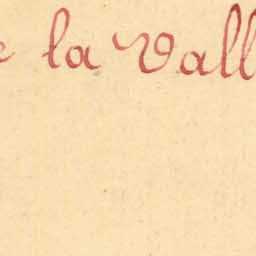 e la Vall